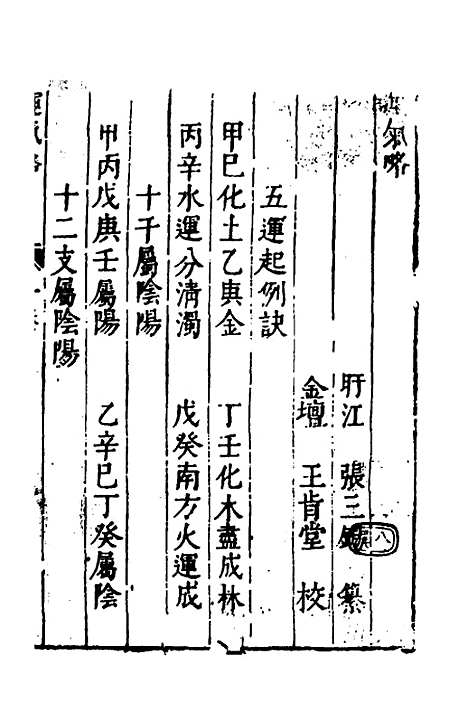 運氣略
盱江 張三錫 纂
金壇 王肯堂 校
五運起例訣
甲巳化土乙庚金 丁壬化木盡成林
丙辛水運分清濁 戊癸南方火運成
十干屬陰陽
甲丙戊庚壬屬陽 乙辛巳丁癸屬陰
十二支屬陰陽
運氣略